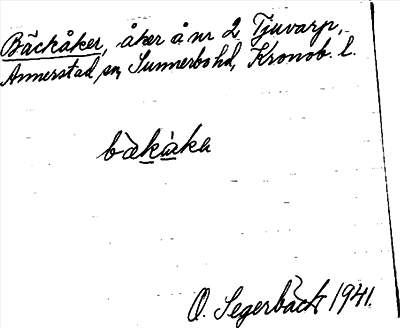 Bäckåker, åker å nr 2 Tjuvarp,
Annerstad sn, Sunnerbo hd, Kronob. l.
O. Segerbäck 1941.